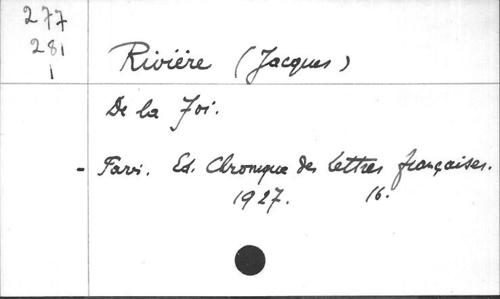 277
281
1
Rivière (Jacques)
De la Foi.
- Paris. Ed. Chronique des lettres françaises.
1927. 16.